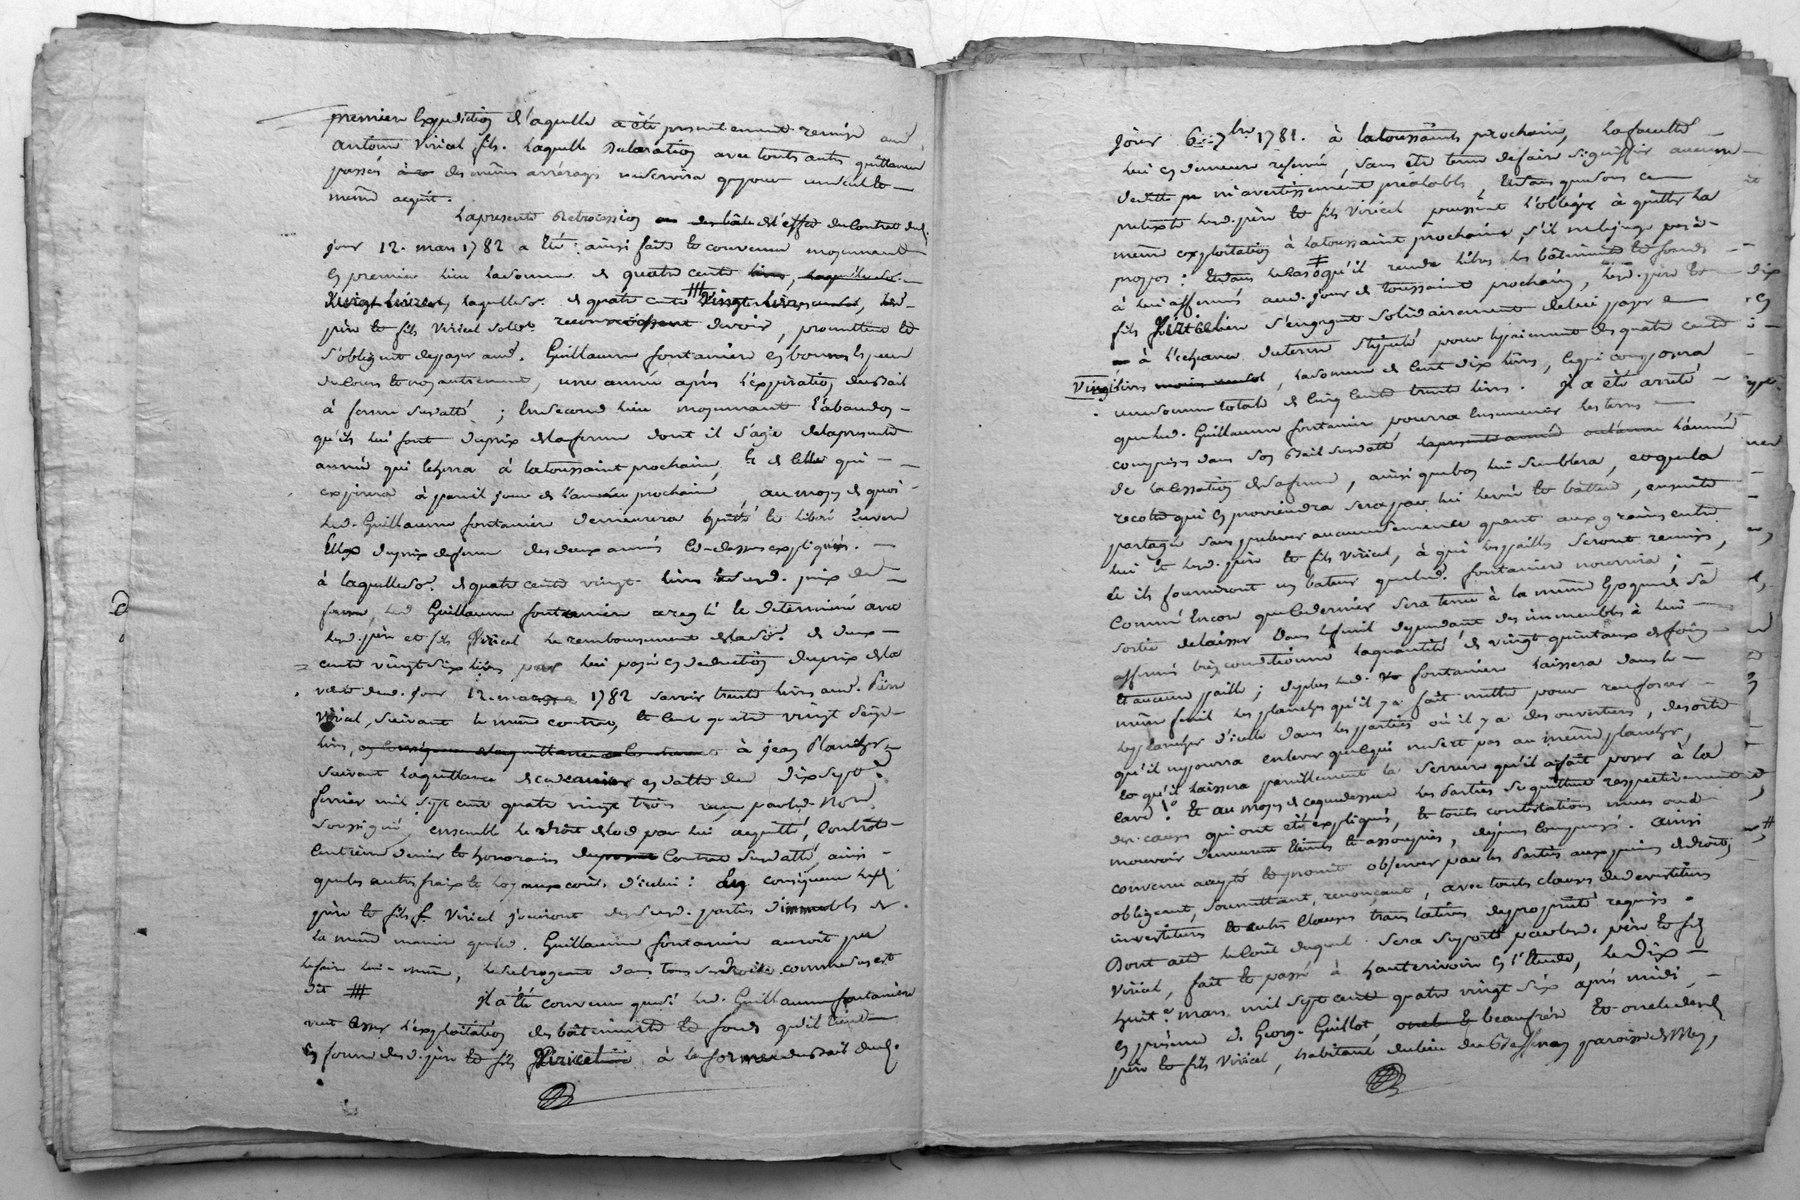 premiere Expedition de laquelle a été presentement remise aud.
antoine Viricel fils. laquelle declaration avec toutes autres quittances
passés des mêmes arrérages ne servira que pour un seul &
même acquit.
La presente Retrocession du contrat dud.
jour 12. mars 1782 a été ainsi faite & convenue moyennant
en premier lieu la somme de quatre cents livres,
vingt livres, laquelle so. de quatre cents vingt livres, lesd.
père & fils Viricel solid. reconnoissent devoir, promettent &
s'obligent de payer aud. Guillaume fontaniere en bonnes especes
du cours & non autrement, une année après l'expiration du Bail
à ferme susdatté ; En second lieu moyennant l'abandon
qu'ils lui font du prix de la ferme dont il s'agit de la presente
année qui echerra à la toussaint prochaine, & de celle qui
expirera à pareil jour de l'année prochaine, au moyen de quoi
led. Guillaume fontaniere demeurera quitte & liberé envers
Eux du prix de ferme des deux années ci-dessus expliquées.
à laquelle so. de quatre cents vingt livres prix de
ferme, led. Guillaume fontaniere a reglé & determiné avec
lesd. père et fils Viricel le remboursement de la so. de deux
cents vingt six livres par lui payée en deduction du prix de la
vente dud. jour 12. mars 1782 savoir trente livres aud. Pierre
Viricel, suivant le même contrat, & cent quatre vingt seize
livres, à jean Plancher
suivant la quittance de ce dernier en datte du dix sept
fevrier mil sept cent quatre vingt trois reçue par led. Not.
soussigné, ensemble le droit de lod par lui acquitté, Controle
Centième denier & honoraires Contrat susdatté, ainsi
que les autres fraix & loyaux couts d'icelui : En consequence lesd.
père & fils Viricel jouiront des susd. parties d'immeubles de
la même maniere que led. Guillaume fontaniere auroit pu
le faire lui-même, le subrogeant dans tous ses droits comme sus est
dit
il a été convenu que si led. Guillaume fontaniere
veut cesser l'exploitation des batiments & fonds qu'il tient
en ferme desd. père & fils Viricel à la forme du Bail dud.
jour 6. 7bre 1781. à la toussaints prochaine, la faculté
lui en demeure reservée, sans être tenu de faire signifier aucune
deditte ni avertissement préalable, & sans que sous ce
pretexte lesd. père & fils Viricel puissent l'obliger à quitter la
même exploitation à la toussaint prochaine, s'il ne le juge pas à
propos : & dans le cas où qu'il rende libres les bâtiments & fonds
à lui affermés aud. jour de toussaint prochaine, lesd. père &
fils Viricel s'engagent solidairement de lui payer
à l'echeance du terme stipulé pour le paiement des quatre cents
vingt livres, la somme de cent dix livres, ce qui composera
une somme totale de cinq cents trente livres. il a été arreté
que led. Guillaume fontaniere pourra ensemencer les terres
comprises dans son Bail susdatté l'année
de la cessation de la ferme, ainsi que bon lui semblera, et que la
recolte qui en proviendra sera par lui levée & battue, ensuite
partagée sans prelever aucune semence quant aux grains entre
lui & lesd. père & fils Viricel, à qui les pailles seront remises,
Et ils fourniront un bateur que led. fontaniere nourrira ;
Comme Encore que ce dernier sera tenu à la même Epoque de sa
sortie de laisser dans le fenil dependant des immeubles à lui
affermés bien conditionnée la quantité de vingt quintaux de foin
& aucune paille ; de plus led. fontaniere laissera dans le
même fenil les planches qu'il y a fait mettre pour renforcer
le plancher d'icelui dans les parties où il y a des ouvertures, de sorte
qu'il ne pourra enlever que ce qui ne sert pas au même plancher,
& qu'il laissera pareillement la serrure qu'il a fait poser à la
cave : & au moyen de ce que dessus les Parties se quittent respectivement
des causes qui ont été expliquées, & toutes contestations mues ou à
mouvoir demeurent éteintes & assoupies, depens compensés. ainsi
convenu accepté & promis observer par les Parties aux peines de droits,
obligeant, soumettant, renonçant, avec toutes clauses de devestitures
investitures & autres Clauses translatives de propriété requises.
Dont acte le coût duquel sera suporté par lesd. père & fils
Viricel, fait & passé à hauterivoire en l'Etude, le dix
huit mars mil sept cent quatre vingt six après midi,
en présence de George Guillot, beaufrère & oncle desd.
père & fils Viricel, habitant du lieu du paroisse de